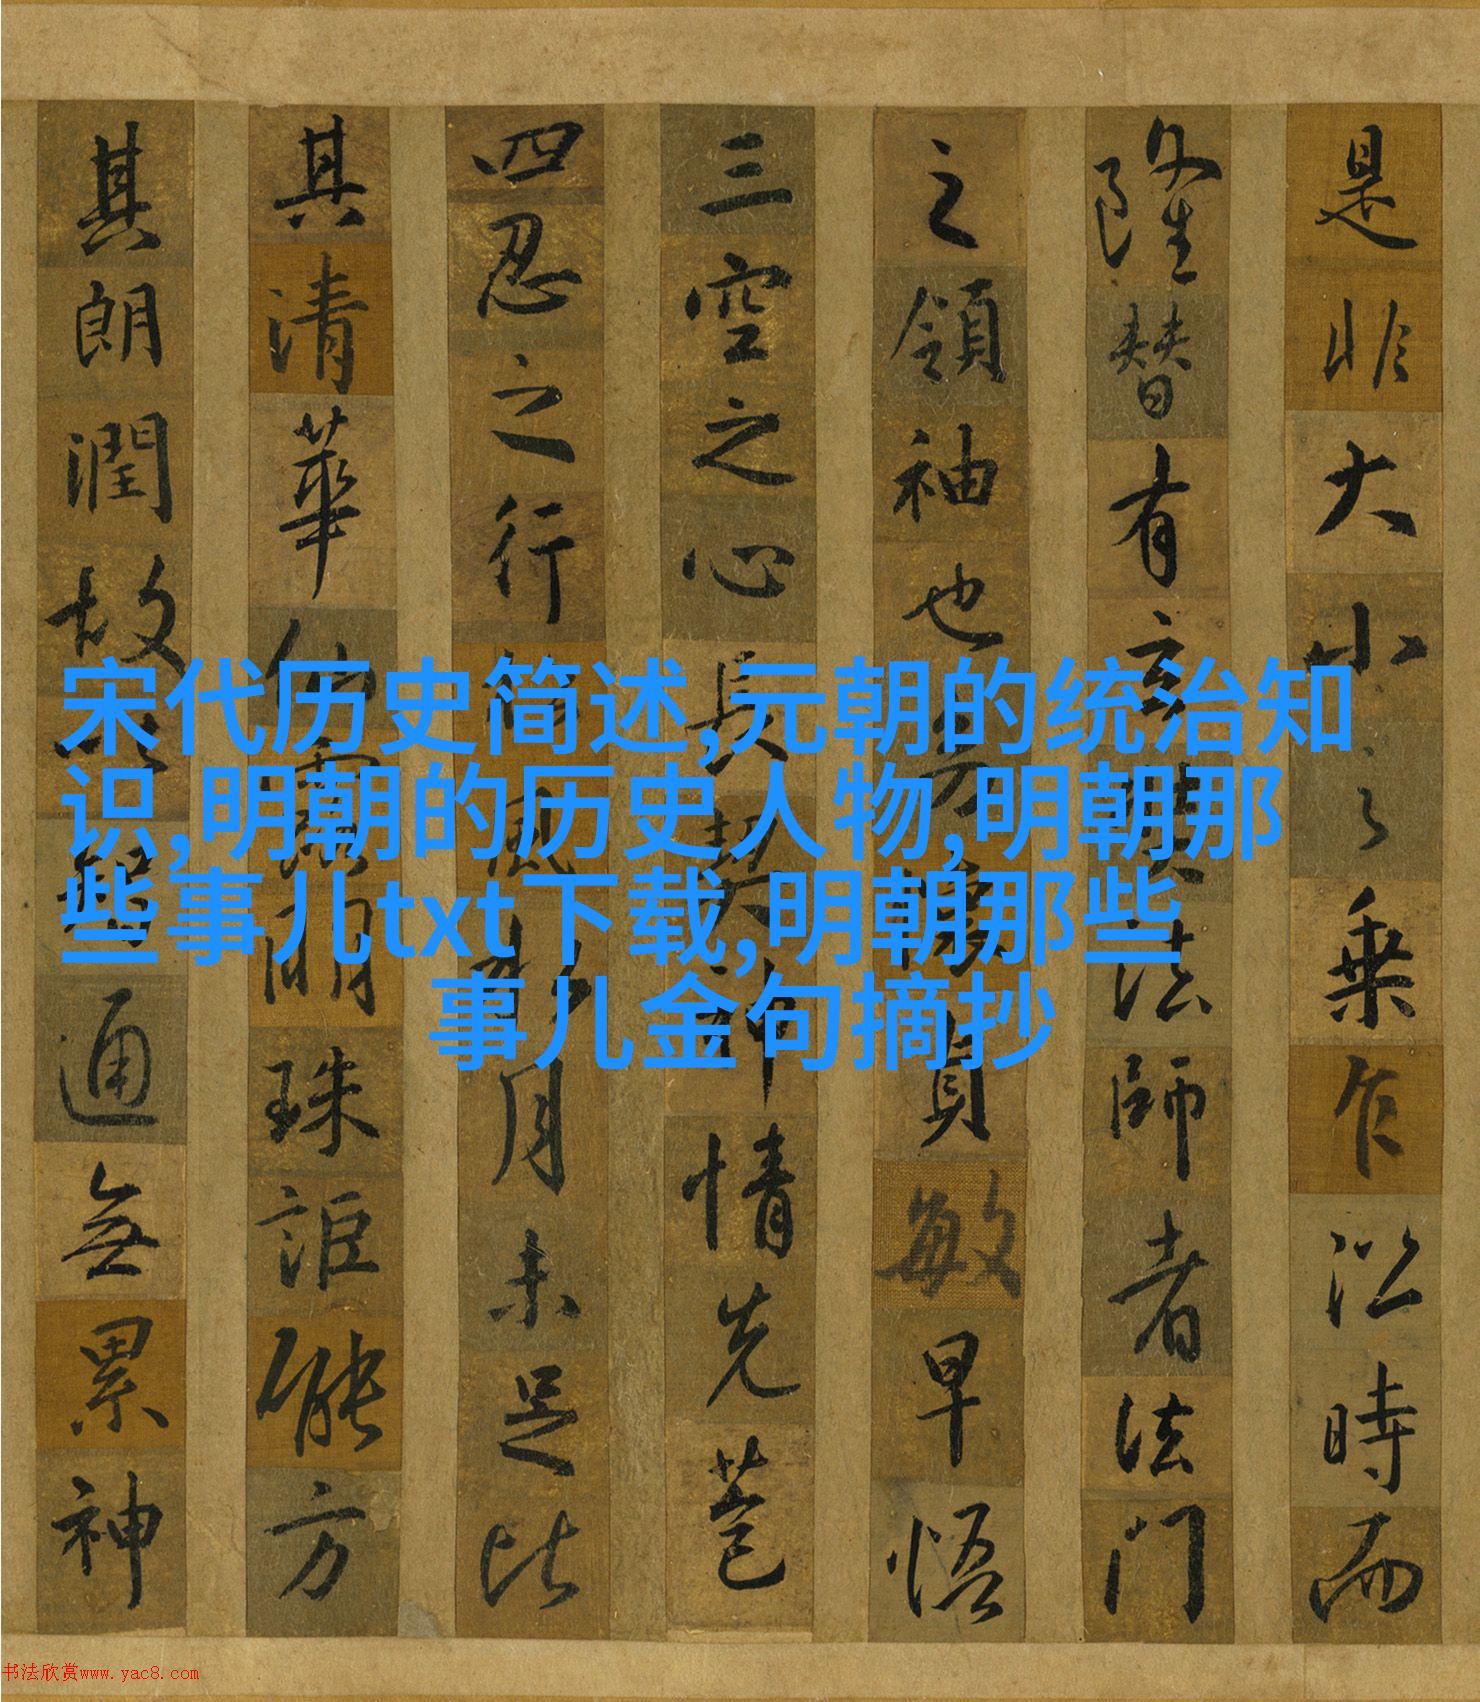 是非大小之乘乍沿時而
隆替有玄奘法師者法門
之領袖也幼懷貞敏早悟
三空之心長契神情先苞
四忍之行松風水月未足比
其清華仙露明珠詎能方
其朗潤故以智通無累神
宋代历史简述,元朝的统治知
识,明朝的历史人物,明朝那
些事儿txt下载,明朝那些
事儿金句摘抄
书法欣赏www.yac8.com